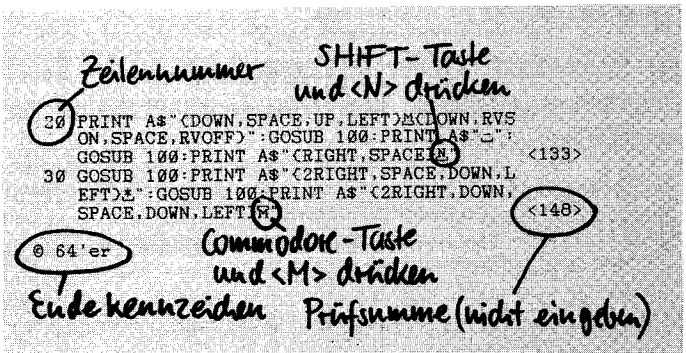 Zeilennummer
SHIFT-Taste
und <N> drücken
20 PRINT A$"{DOWN,SPACE,UP,LEFT}M{DOWN,RVS
ON,SPACE,RVOFF}":GOSUB 100:PRINT A$"":
GOSUB 100:PRINT A$"{RIGHT,SPACE}N <133>
30 GOSUB 100:PRINT A$"{2RIGHT,SPACE,DOWN,L
EFT}":GOSUB 100:PRINT A$"{2RIGHT,DOWN,
SPACE,DOWN,LEFT}M <148>
@ 64'er
Commodore-Taste
und <M> drücken
Endekennzeichen
Prüfsumme (nicht eingeben)